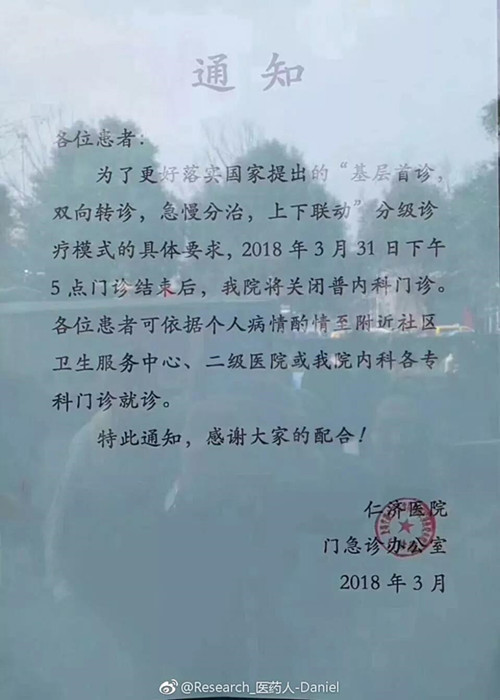 通知
各位患者：
为了更好落实国家提出的“基层首诊，
双向转诊，急慢分治，上下联动”分级诊
疗模式的具体要求，2018年3月31日下午
5点门诊结束后，我院将关闭普内科门诊。
各位患者可依据个人病情酌情至附近社区
卫生服务中心、二级医院或我院内科各专
科门诊就诊。
特此通知，感谢大家的配合！
仁济医院
门急诊办公室
2018年3月
@Research_医药人-Daniel